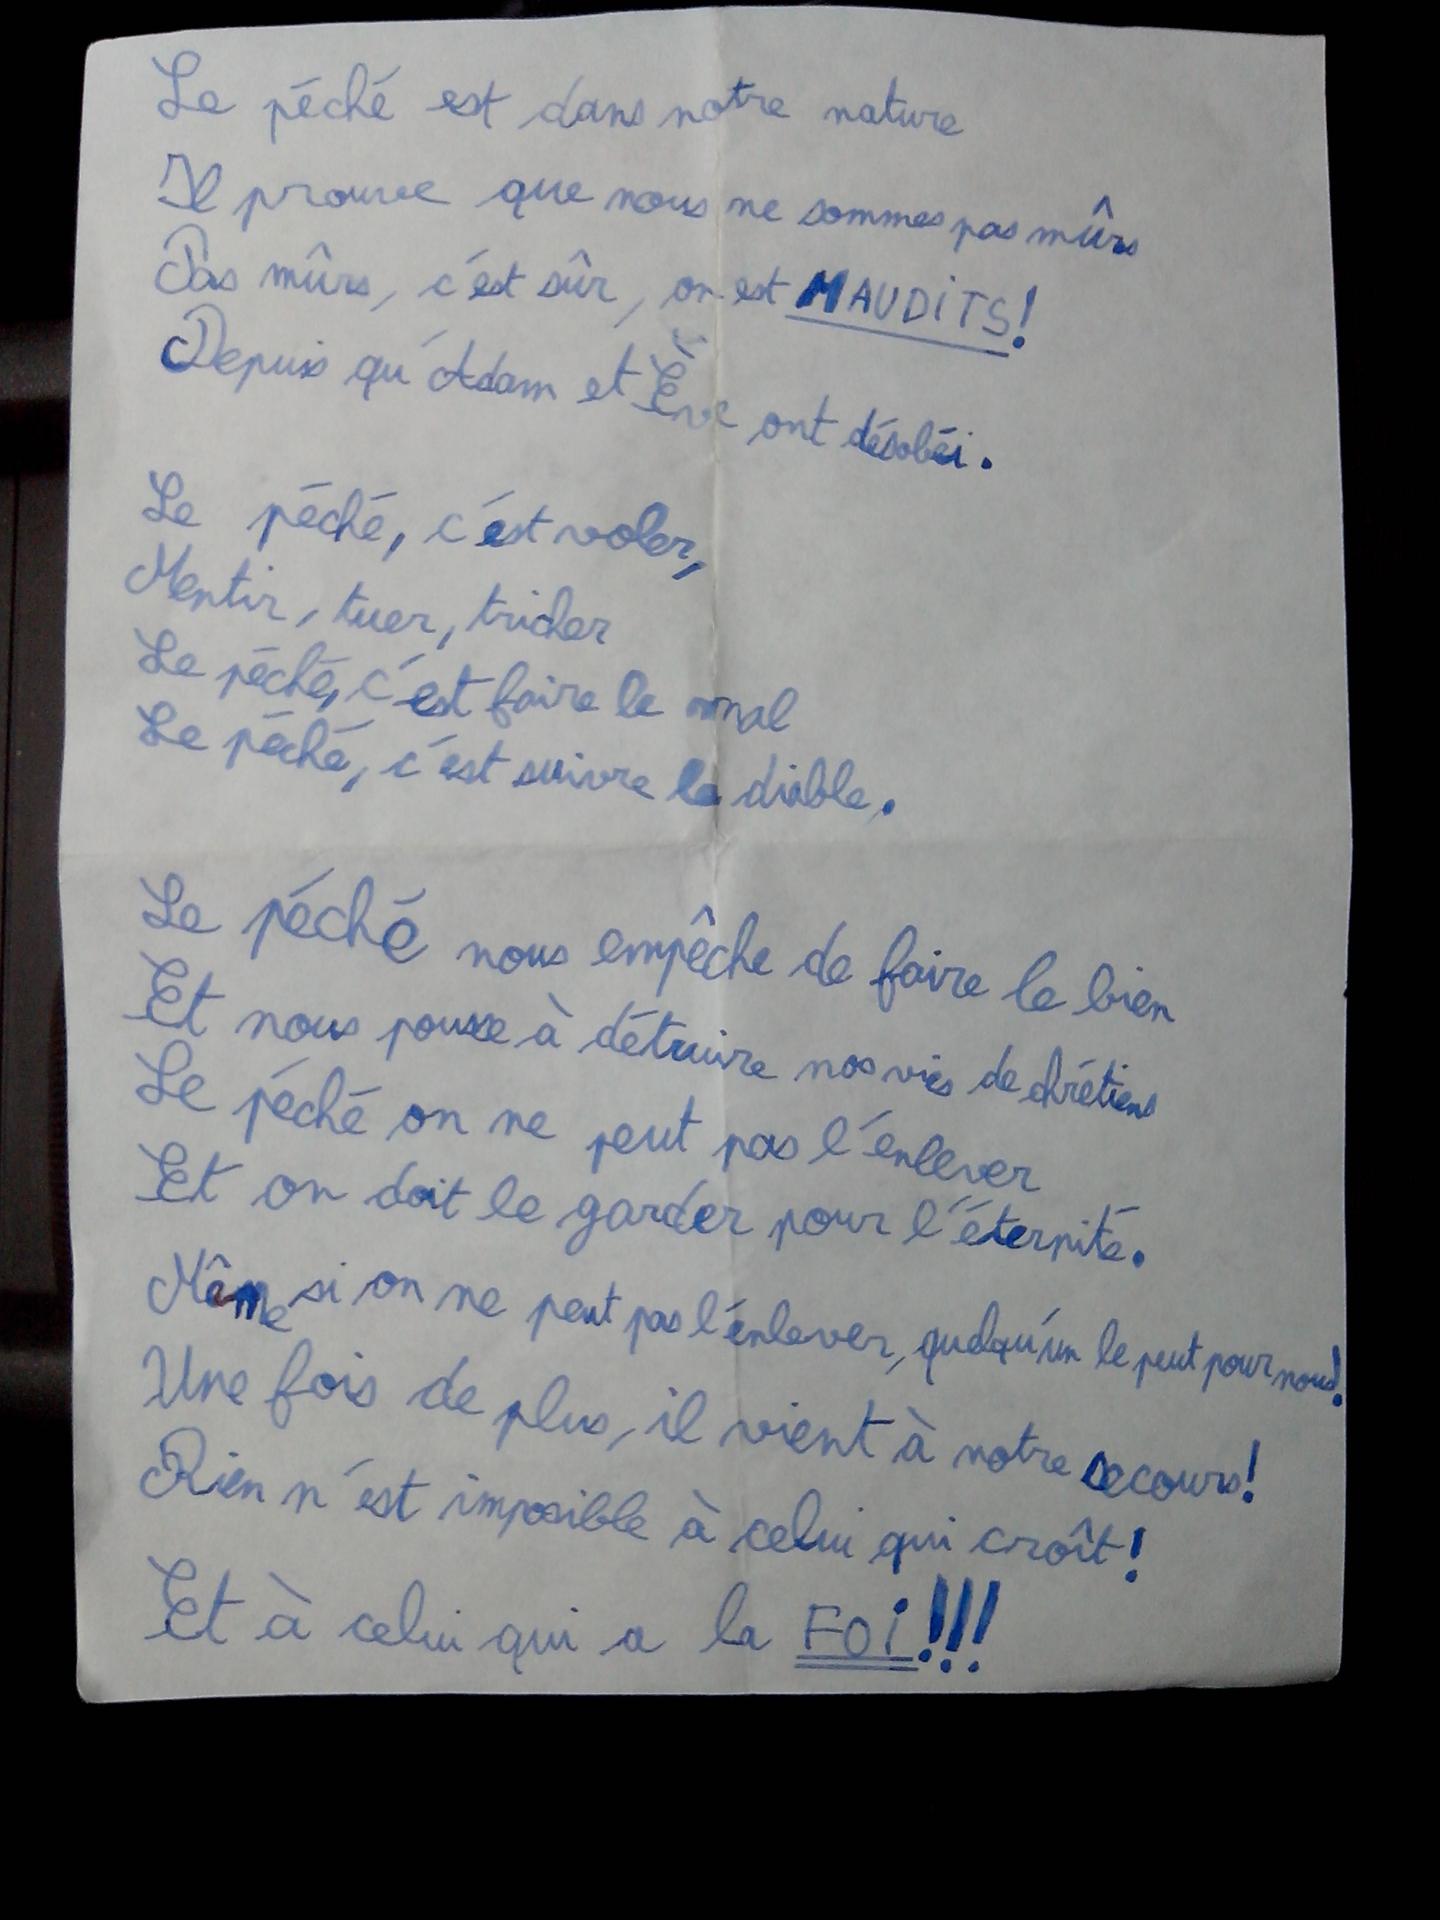 Le péché est dans notre nature
Il prouve que nous ne sommes pas mûrs
Pas mûrs, c'est sûr, on est MAUDITS!
Depuis qu'Adam et Ève ont désobéi.
Le péché, c'est voler,
Mentir, tuer, tricher
Le péché, c'est faire le mal
Le péché, c'est suivre le diable.
Le péché nous empêche de faire le bien
Et nous pousse à détruire nos vies de chrétiens
Le péché on ne peut pas l'enlever
Et on doit le garder pour l'éternité.
Même si on ne peut pas l'enlever, quelqu'un le peut pour nous!
Une fois de plus, il vient à notre secours!
Rien n'est imposible à celui qui croît!
Et à celui qui a la FOi!!!